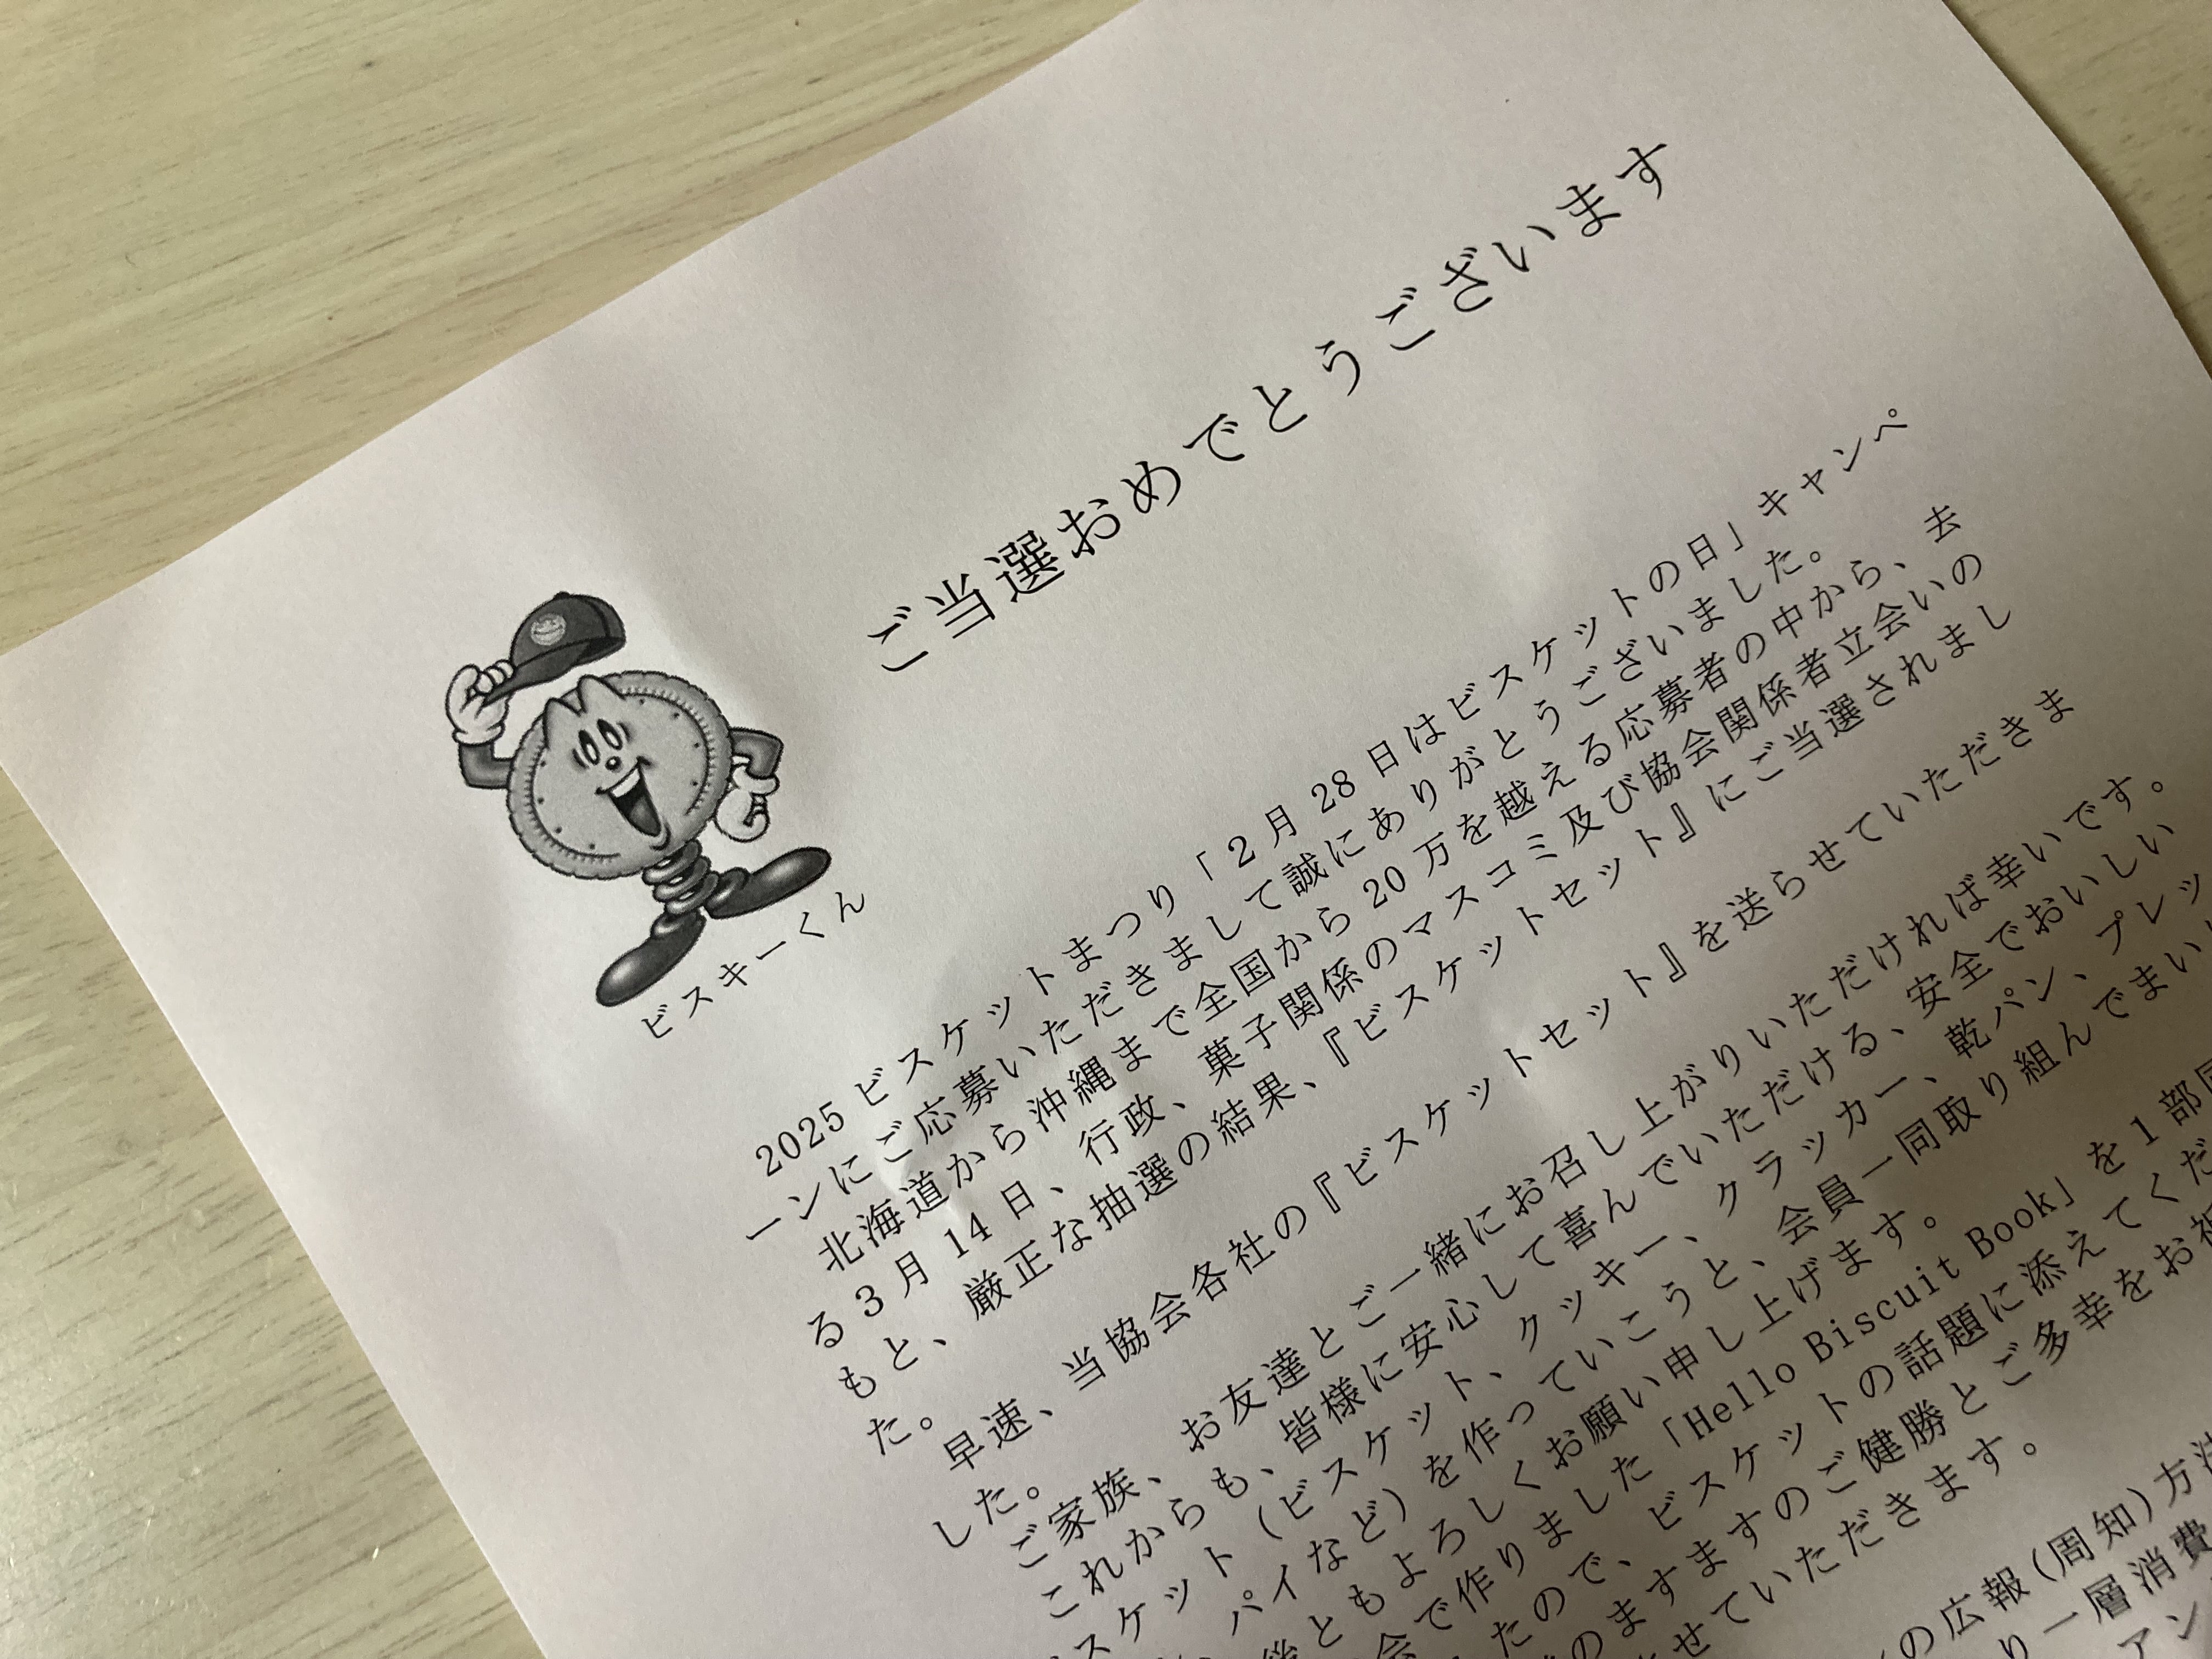 ご当選おめでとうございます
ビスキーくん
2025 ビスケットまつり「2月 28 日はビスケットの日」キャンペ
ーンにご応募いただきまして誠にありがとうございました。
北海道から沖縄まで全国から 20 万を越える応募者の中から、去
る 3 月 14 日、行政、菓子関係のマスコミ及び協会関係者立会いの
もと、厳正な抽選の結果、『ビスケットセット』にご当選されまし
た。
早速、当協会各社の『ビスケットセット』を送らせていただきま
した。
ご家族、お友達とご一緒にお召し上がりいただければ幸いです。
これからも、皆様に安心して喜んでいただける、安全でおいしい
スケット（ビスケット、クッキー、クラッカー、乾パン、プレッ
パイなど）を作っていこうと、会員一同取り組んでまい
ともよろしくお願い申し上げます。
会で作りました「Hello Biscuit Book」を 1 部
たので、ビスケットの話題に添えてくだ
のますますのご健勝とご多幸をお祝
せていただきます。
の広報(周知)方法
り一層消費
アン